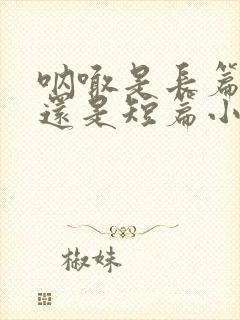 吶喊是長篇
還是短篇小
椒妹